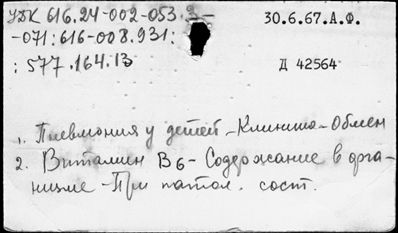 УДК 616.24-002-053.3-
30.6.67.А.Ф.
-071:616-008.931:
:577.164.13
Д 42564
1. Пневмония у детей - Клиника - Обмен
2. Витамин B6 - Содержание в орга-
низме - При патол. сост.